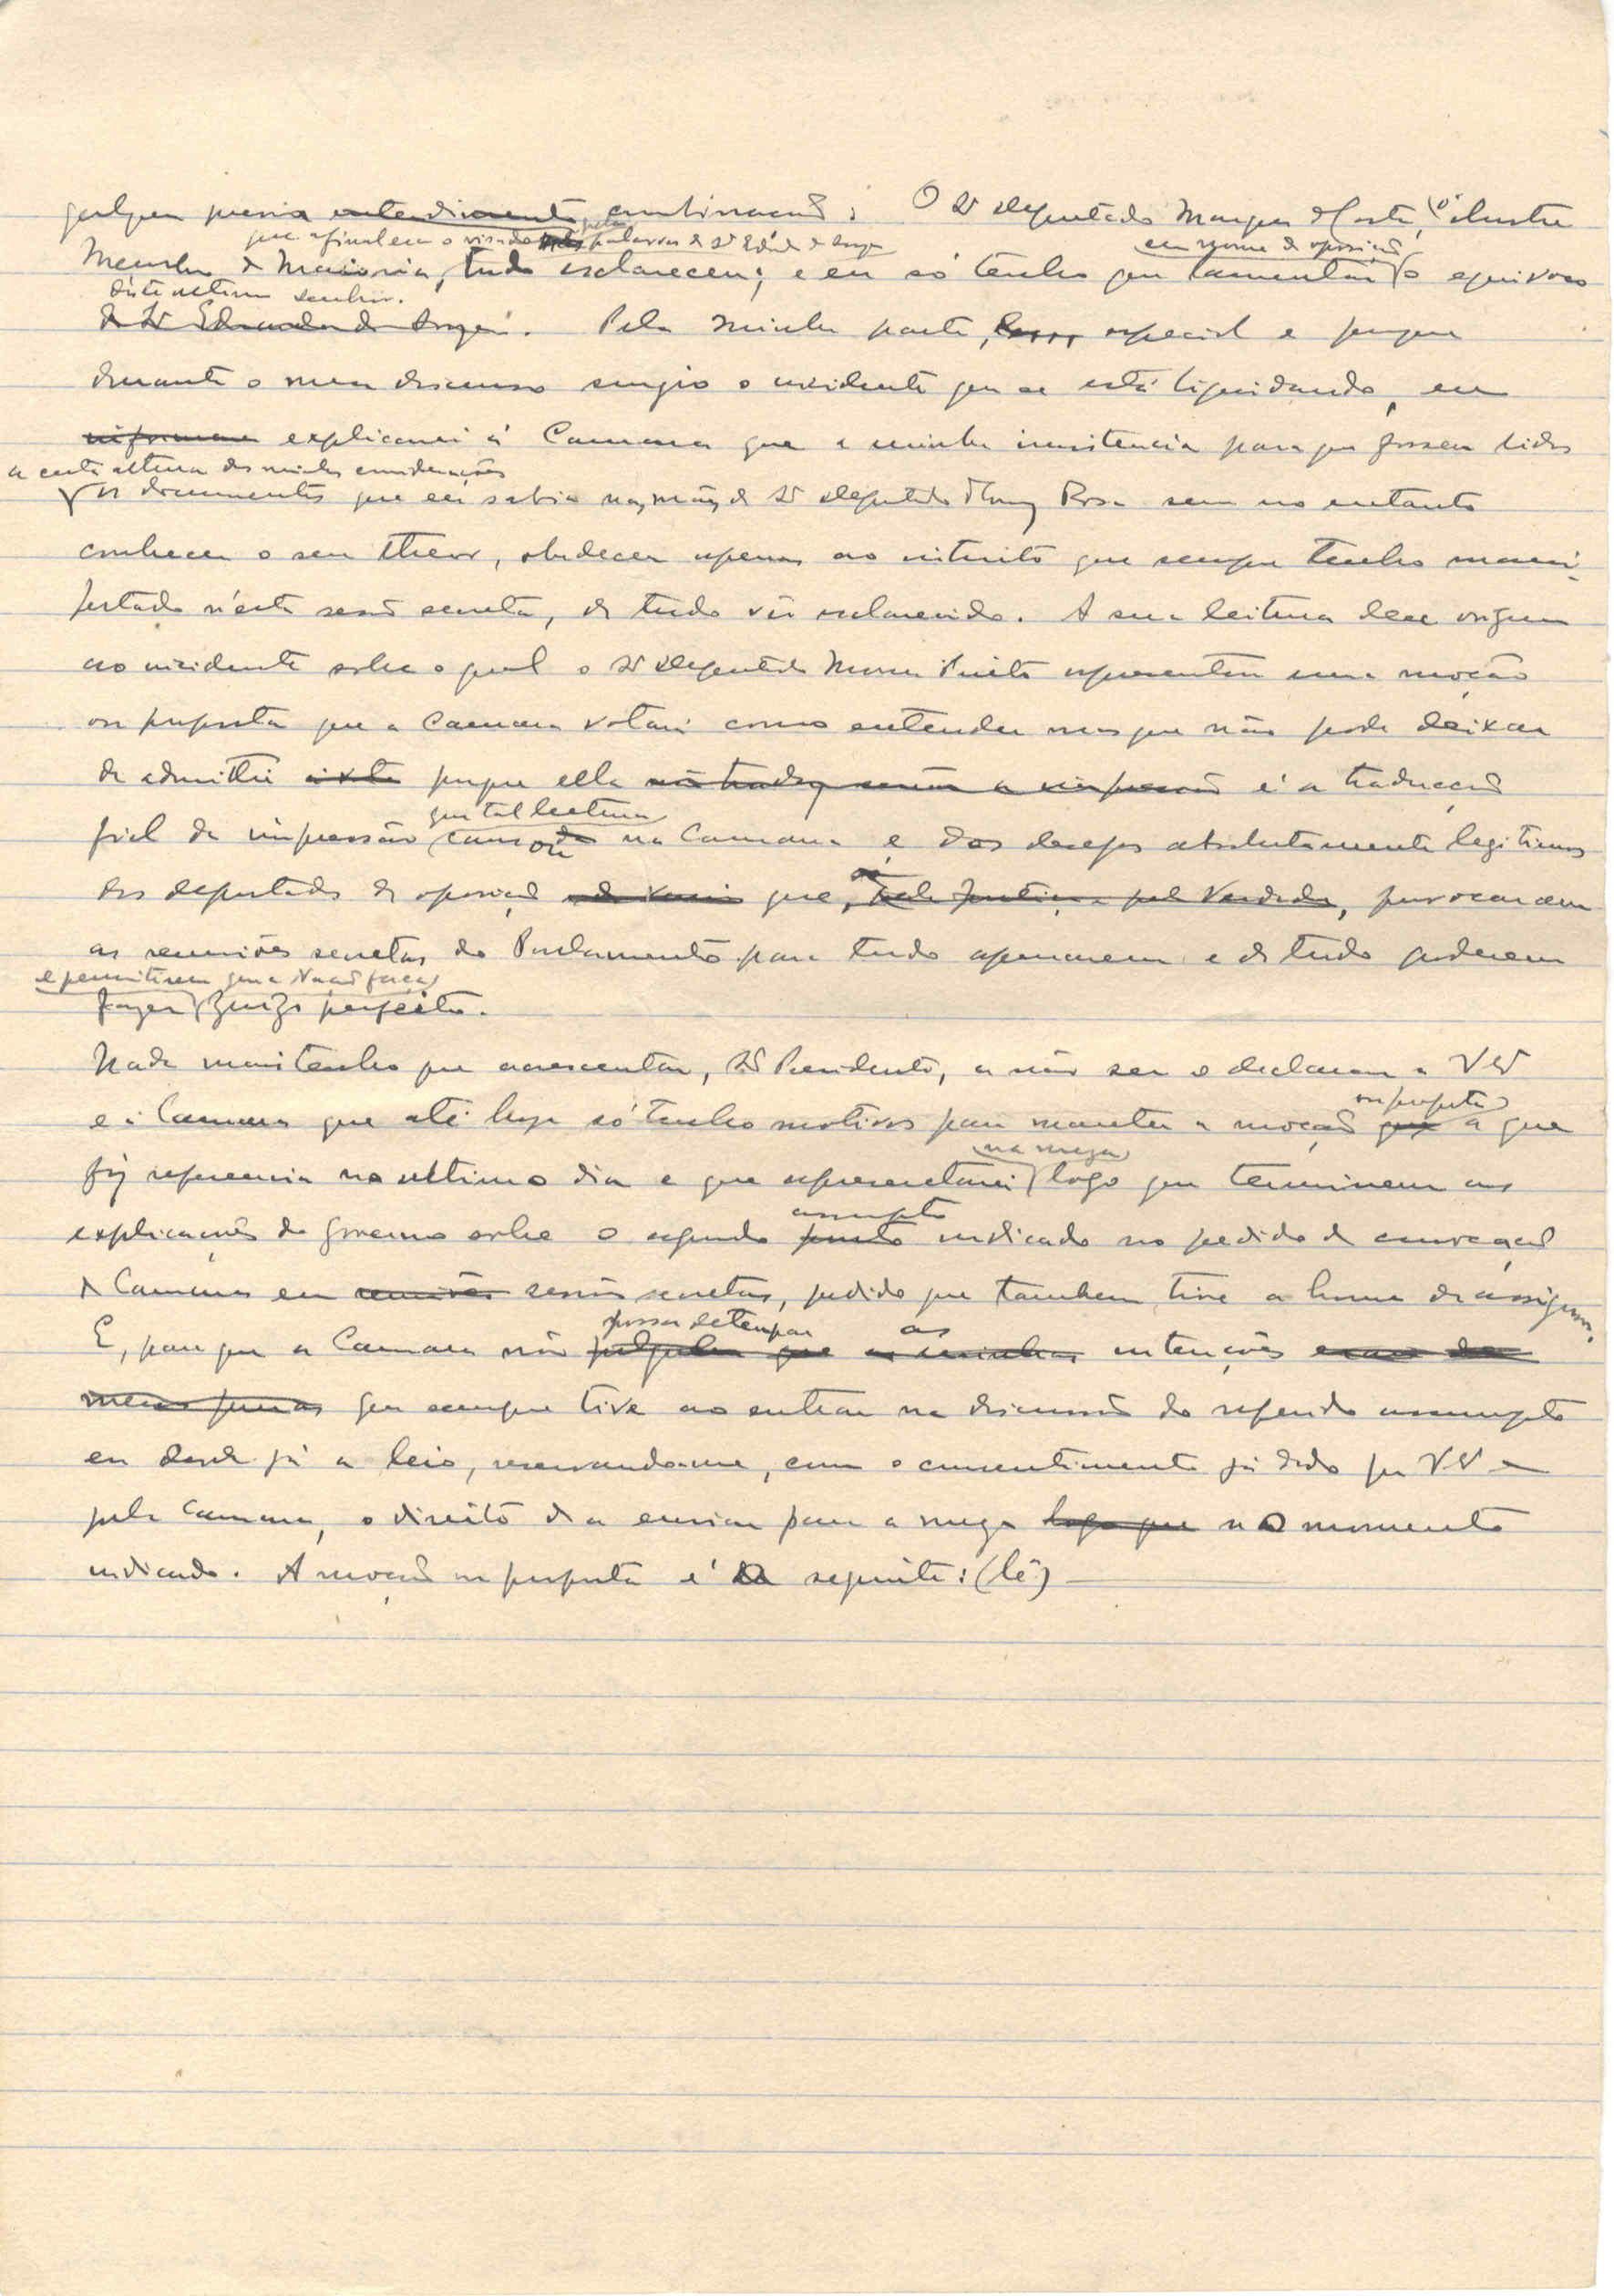 qualquer previa entendimento combinação: O Sr Deputado Marques da Costa, o ilustre
que afinal era o visado pelas palavras do Sr Eduardo de Souza em nome da oposição
Membro da Maioria, tudo esclareceu; e eu só tenho que lamentar o equivoco
d'este ultimo senhor.
do Sr Eduardo de Souza. Pela minha parte, especial e porque
durante o meu discurso surgio o incidente que se está liquidando, eu
informar explicarei á Camara que a minha insistencia para que fossem lidos
a certa altura das minhas considerações
os documentos que eu sabia nas mãos do Sr Deputado Rosa sem no entanto
conhecer o seu theor, obedeceu apenas ao intuito que sempre tenho mani-
festado n'esta sessão secreta, de tudo vêr esclarecido. A sua leitura deu origem
ao incidente sobre o qual o Sr Deputado Moura Pinto apresentou uma moção
ou proposta que a Camara votará como entender mas que não pode deixar
de admittir porque ella não traduz senão a impressão é a traducção
que tal leitura
fiel da impressão causou na Camara e dos desejos absolutamente legitimos
dos deputados da oposição que, pela Justiça e pela Verdade, provocaram
as reuniões secretas do Parlamento para tudo apurarem e de tudo poderem
e permitirem que a Nação faça
fazer juizo perfeito.
Nada mais tenho que acrescentar, Sr Presidente, a não ser o declarar a V Ex
ou proposta
e á Camara que até hoje só tenho motivos para manter a moção que a que
na meza
fiz referencia no ultimo dia e que apresentarei logo que terminem as
assumpto
explicações do Governo sobre o segundo ponto indicado no pedido de convocação
da Camara em reunião sessões secretas, pedido que tambem tive a honra de assignar.
possa deturpar as
E, para que a Camara não julgasse que as minhas intenções eram de
menos puras que sempre tive ao entrar na discussão do referido assumpto
eu desde já a leio, reservando-me, com o consentimento já dado por V Ex e
pela Camara, o direito de a enviar para a meza logo que no momento
indicado. A moção ou proposta é a seguinte: (lê)